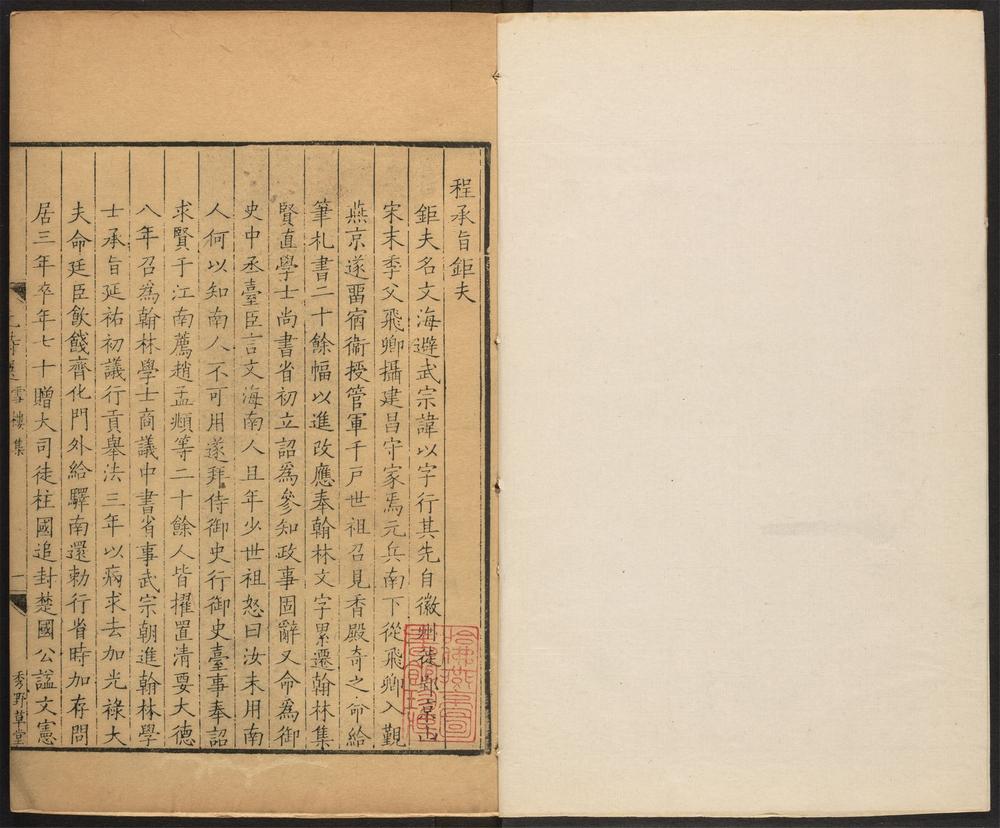 程承旨鉅夫
鉅夫名文海避武宗諱以字行其先自徽州徙郢京山
宋末季父飛卿攝建昌守家焉元兵南下從飛卿入覲
燕京遂畱宿衞授管軍千戸世祖召見香殿奇之命給
筆札書二十餘幅以進改應奉翰林文字累遷翰林集
賢直學士尚書省初立詔爲參知政事固辭又命爲御
史中丞臺臣言文海南人且年少世祖怒曰汝未用南
人何以知南人不可用遂拜侍御史行御史臺事奉詔
求賢于江南薦趙孟頫等二十餘人皆擢置清要大德
八年召爲翰林學士商議中書省事武宗朝進翰林學
士承旨延祐初議行貢舉法三年以病求去加光祿大
夫命廷臣飲餞齊化門外給驛南還勅行省時加存問
居三年卒年七十贈大司徒柱國追封楚國公謚文憲
雪樓集
一
秀野草堂
哈佛燕京圖
書館珍藏